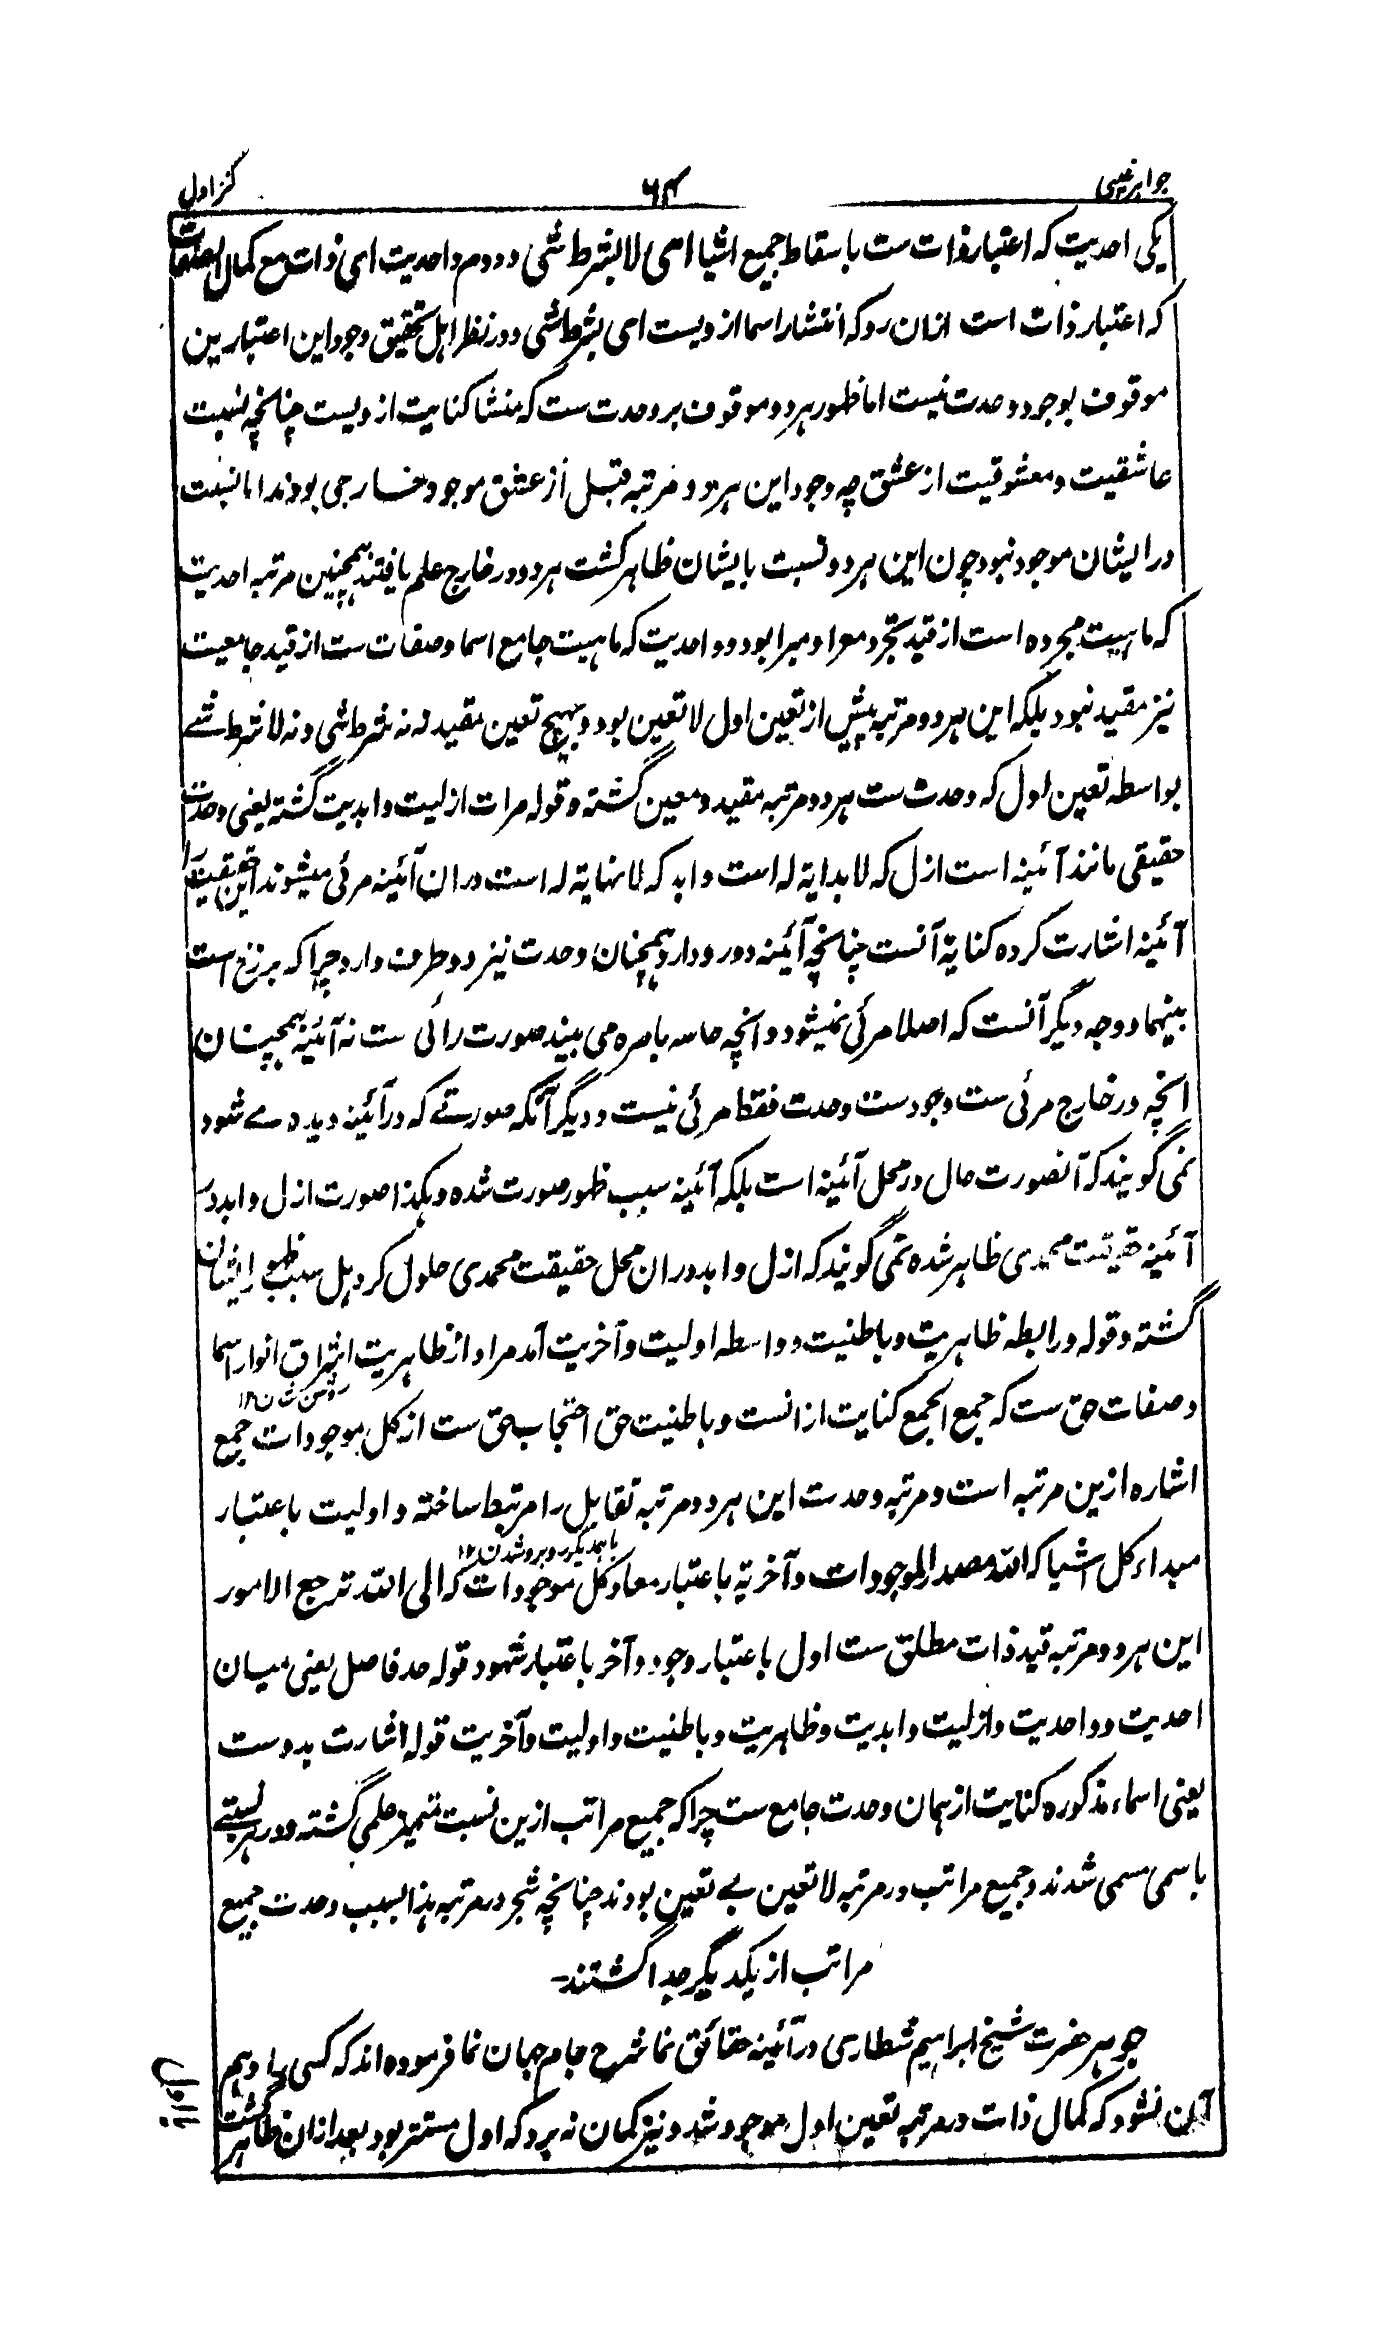 جواهر غیبی
۶۴
کنز اول
یکی احدیت که اعتبار ذات ست با سقاط جمیع اشیا ای لا بشرط شی و دوم واحدیت ای ذات مع کمال الصفات
که اعتبار ذات است ازان رو که انتشار اسما از ویست ای بشرط شی و در نظر اهل تحقیق وجود این اعتبارین
موقوف بوجود وحدت نیست اما ظهور هر دو موقوف بر وحدت ست که منشا کنایت از ویست چنانچه نسبت
عاشقیت و معشوقیت از عشق چه وجود این هر دو مرتبه قبل از عشق موجود خارجی بودند اما نسبت
در ایشان موجود نبود چون این هر دو نسبت بایشان ظاهر گشت هر دو در خارج علم یافتند همچنین مرتبه احدیت
که ماهیت مجرده است از قید تجرد معرا و مبرا بود و واحدیت که ماهیت جامع اسما و صفات ست از قید جامعیت
نیز مقید نبود بلکه این هر دو مرتبه پیش از تعین اول لا تعین بود و بهیچ تعین مقید نه نه بشرط شی و نه لا بشرط شے
بواسطه تعین اول که وحدت ست هر دو مرتبه مقید و معین گشته و قوله مرات ازلیت و ابدیت گشته یعنی وحدت
حقیقی مانند آئینه است ازل که لا بدایة له است و ابد که لا نهایة له است دران آئینه مرئی میشوند این حقیقت را
آئینه اشارت کرده کنایة آنست چنانچه آئینه دو رو دارد همچنان وحدت نیز دو طرف دارد چرا که برزخ است
بینهما و وجه دیگر آنست که اصلا مرئی نمیشود و آنچه حاسه باصره می بیند صورت رائی ست نه آئینه همچنان
انچه در خارج مرئی ست وجودست وحدت فقط مرئی نیست و دیگر آنکه صورتے که در آئینه دیده مے شود
نمی گویند که آنصورت حال در محل آئینه است بلکه آئینه سبب ظهور صورت شده و هکذا صورت ازل و ابد در
آئینه حقیقت محمدی ظاهر شده نمی گویند که ازل و ابد دران محل حقیقت محمدی حلول کرد بل سبب ظهور ایشان
گشته و قوله و رابطه ظاهریت و باطنیت و واسطه اولیت و آخریت آمد مراد از ظاهریت اشراق انوار اسما
روشن شدن ۱۲
و صفات حق ست که جمع الجمع کنایت ازانست و باطنیت حق احتجاب حق ست از کل موجودات جمع
اشاره ازین مرتبه است و مرتبه وحدت این هر دو مرتبه تقابل را مرتبط ساخته و اولیت باعتبار
باهمدیگر روبرو شدن ۱۲
مبداء کل اشیا که الله مصدر الموجودات و آخریة باعتبار معاد کل موجودات که الی الله ترجع الامور
این هر دو مرتبه قید ذات مطلق ست اول باعتبار وجود و آخر باعتبار شهود قوله حد فاصل یعنی میان
احدیت و واحدیت و ازلیت و ابدیت و ظاهریت و باطنیت و اولیت و آخریت قوله اشارت بدوست
یعنی اسماء مذکوره کنایت از همان وحدت جامع ست چرا که جمیع مراتب ازین نسبت متمیز علمی گشته و در هر نسبتے
باسمی مسمی شدند و جمیع مراتب در مرتبه لا تعین بے تعین بودند چنانچه شجر در مرتبه بذا بسبب وحدت جمیع
مراتب از یکدیگر جدا گشتند-
جوهر حضرت شیخ ابراهیم شطاری در آئینه حقائق نما شرح جام جهان نما فرموده اند که کسی را وهم
آن نشود که کمال ذات در مرتبه تعین اول موجود شد و نیز گمان نه برد که اول مستتر بود بعد ازان ظاهر گشت